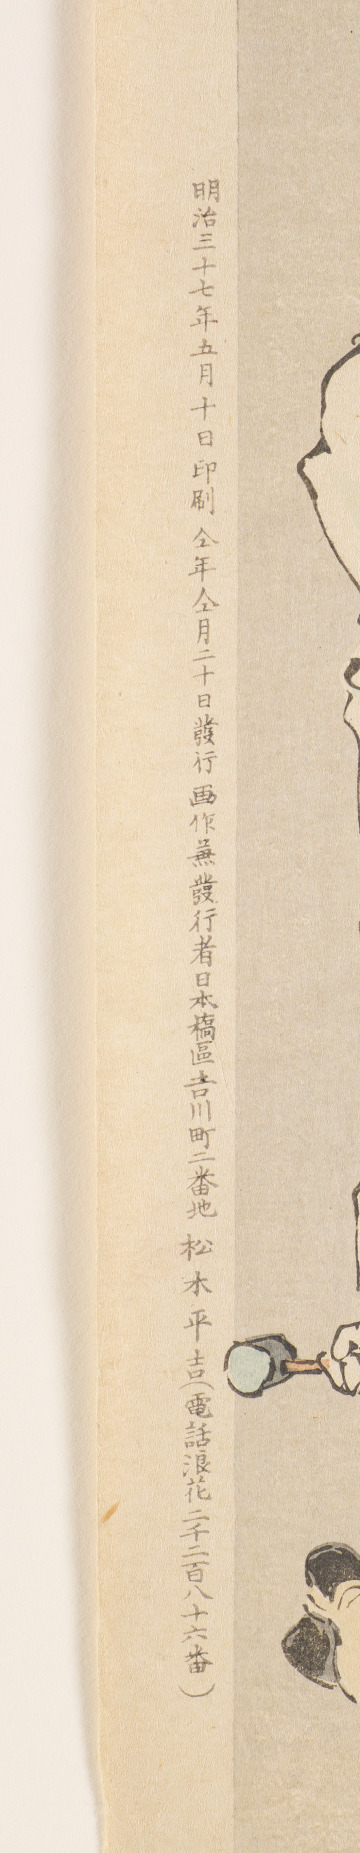 明治三十七年五月十日印刷仝年仝月二十日發行画作兼發行者日本橋區吉川町二番地松木平吉(電話浪花二千二百八十六番)